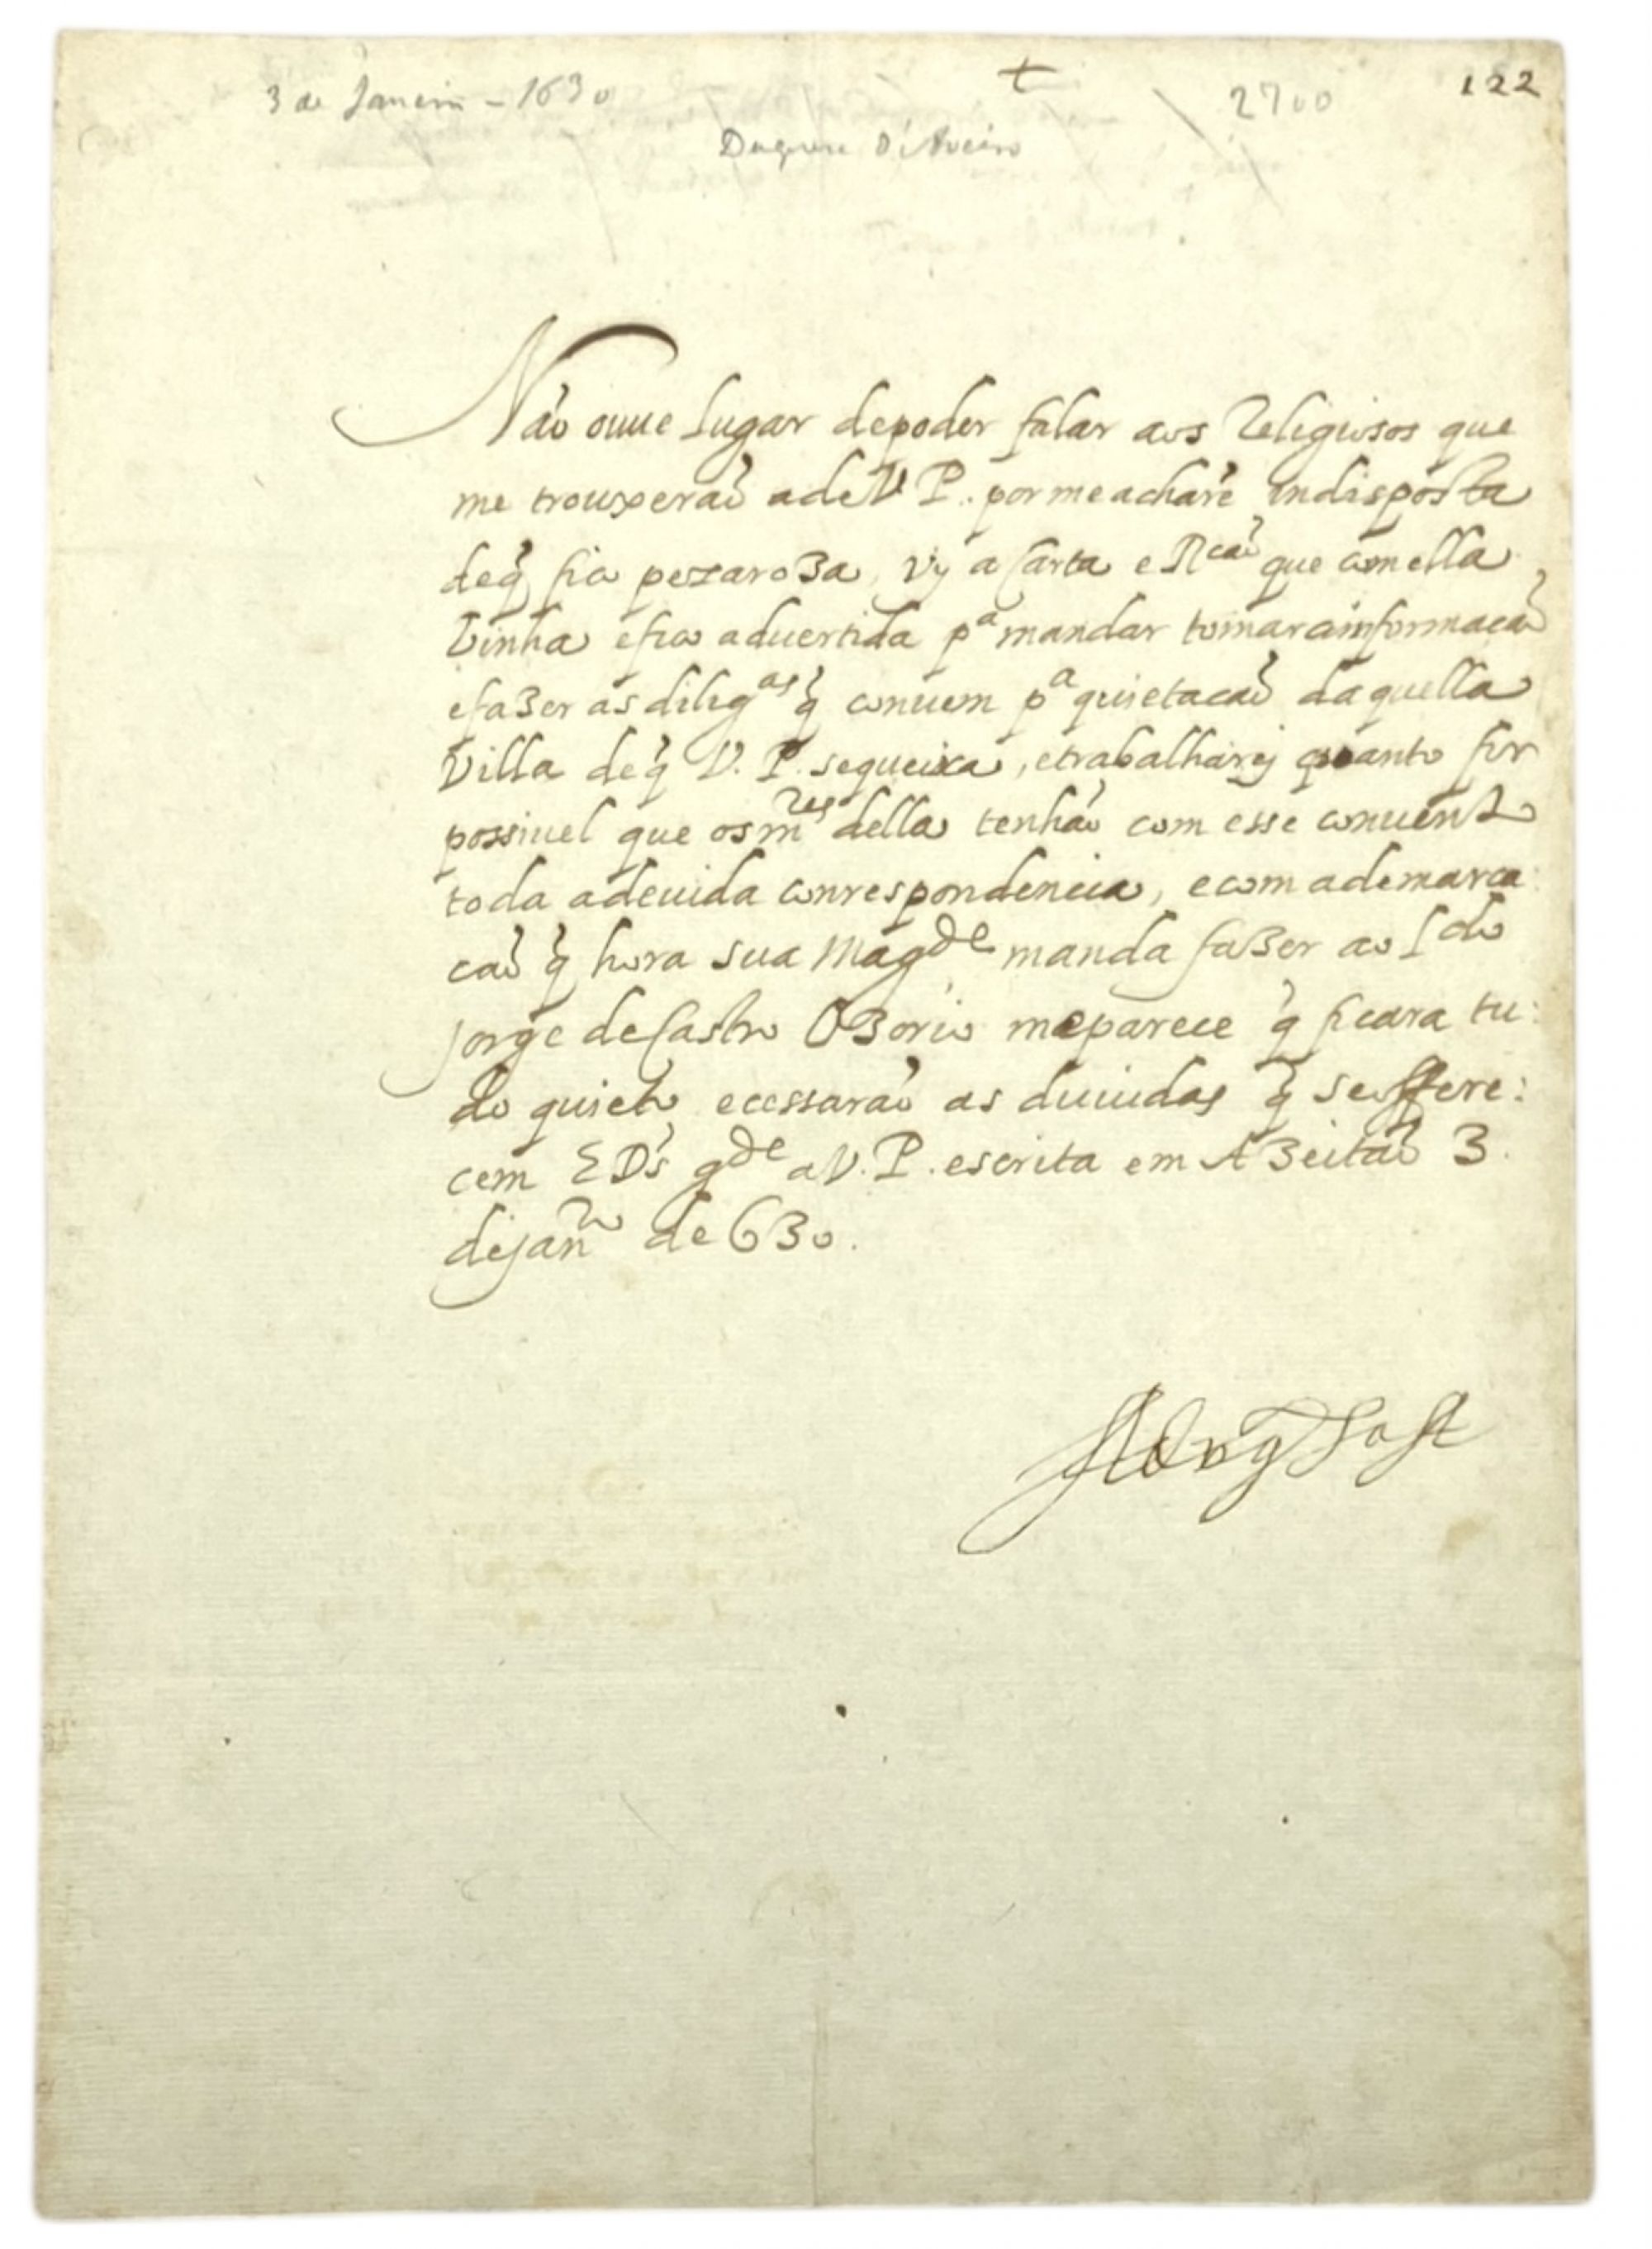 3 de Janeiro - 1630
2700
122
Duqueza D'Aveiro
Não ouue lugar depoder falar aos Religiosos que
me trouxeraõ adeV P. por me achar e indisposta
deq̃ fico pezaroza, vy a Carta e Rcaõ que com ella
vinha efico aduertida pª mandar tomar ainformacaõ
efazer as diligas q̃ conuem pª quietacaõ daquella
Villa deq̃ V. P. sequeixa, etrabalharej quanto for
possiuel que osmres della tenhaõ com esse conuento
toda adeuida conrespondencia, ecom ademarca
caõ q̃ hora sua Magde manda fazer ao Ldo
Jorge deCastro Ozorio meparece q̃ ficara tu:
do quieto, ecessaraõ as duuidas q̃ seoffere:
cem E Ds gde a V. P. escrita em Azeitaõ 3.
dejanro de 630.